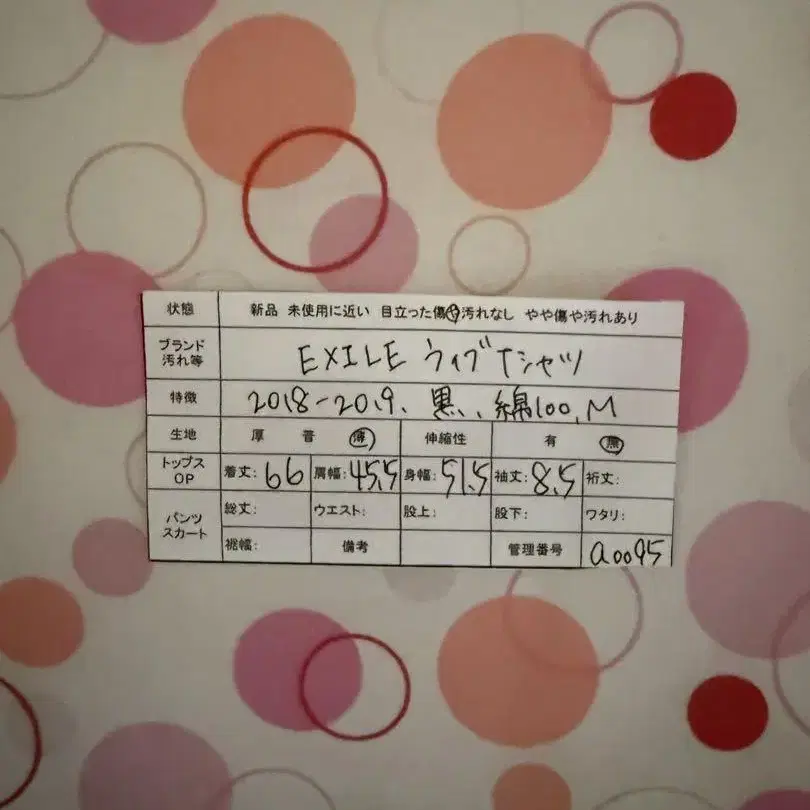 状態 新品 未使用に近い 目立った傷や汚れなし やや傷や汚れあり
ブランド
汚れ等
EXILE ライブTシャツ
特徴 2018-2019、黒、綿100、M
生地 厚 普 薄 伸縮性 有 無
トップス
OP
着丈: 66 肩幅: 45.5 身幅: 51.5 袖丈: 8.5 裄丈:
パンツ
スカート
総丈: ウエスト: 股上: 股下: ワタリ:
裾幅: 備考 管理番号 a0095